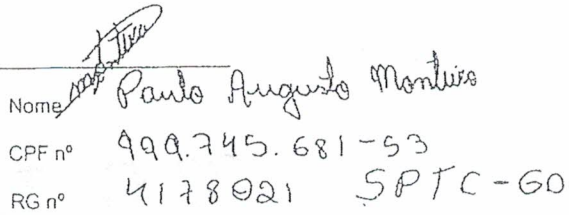 Nome Paulo Augusto Monteiro
CPF nº 999.745.681-53
RG nº 4178021 SPTC-GO